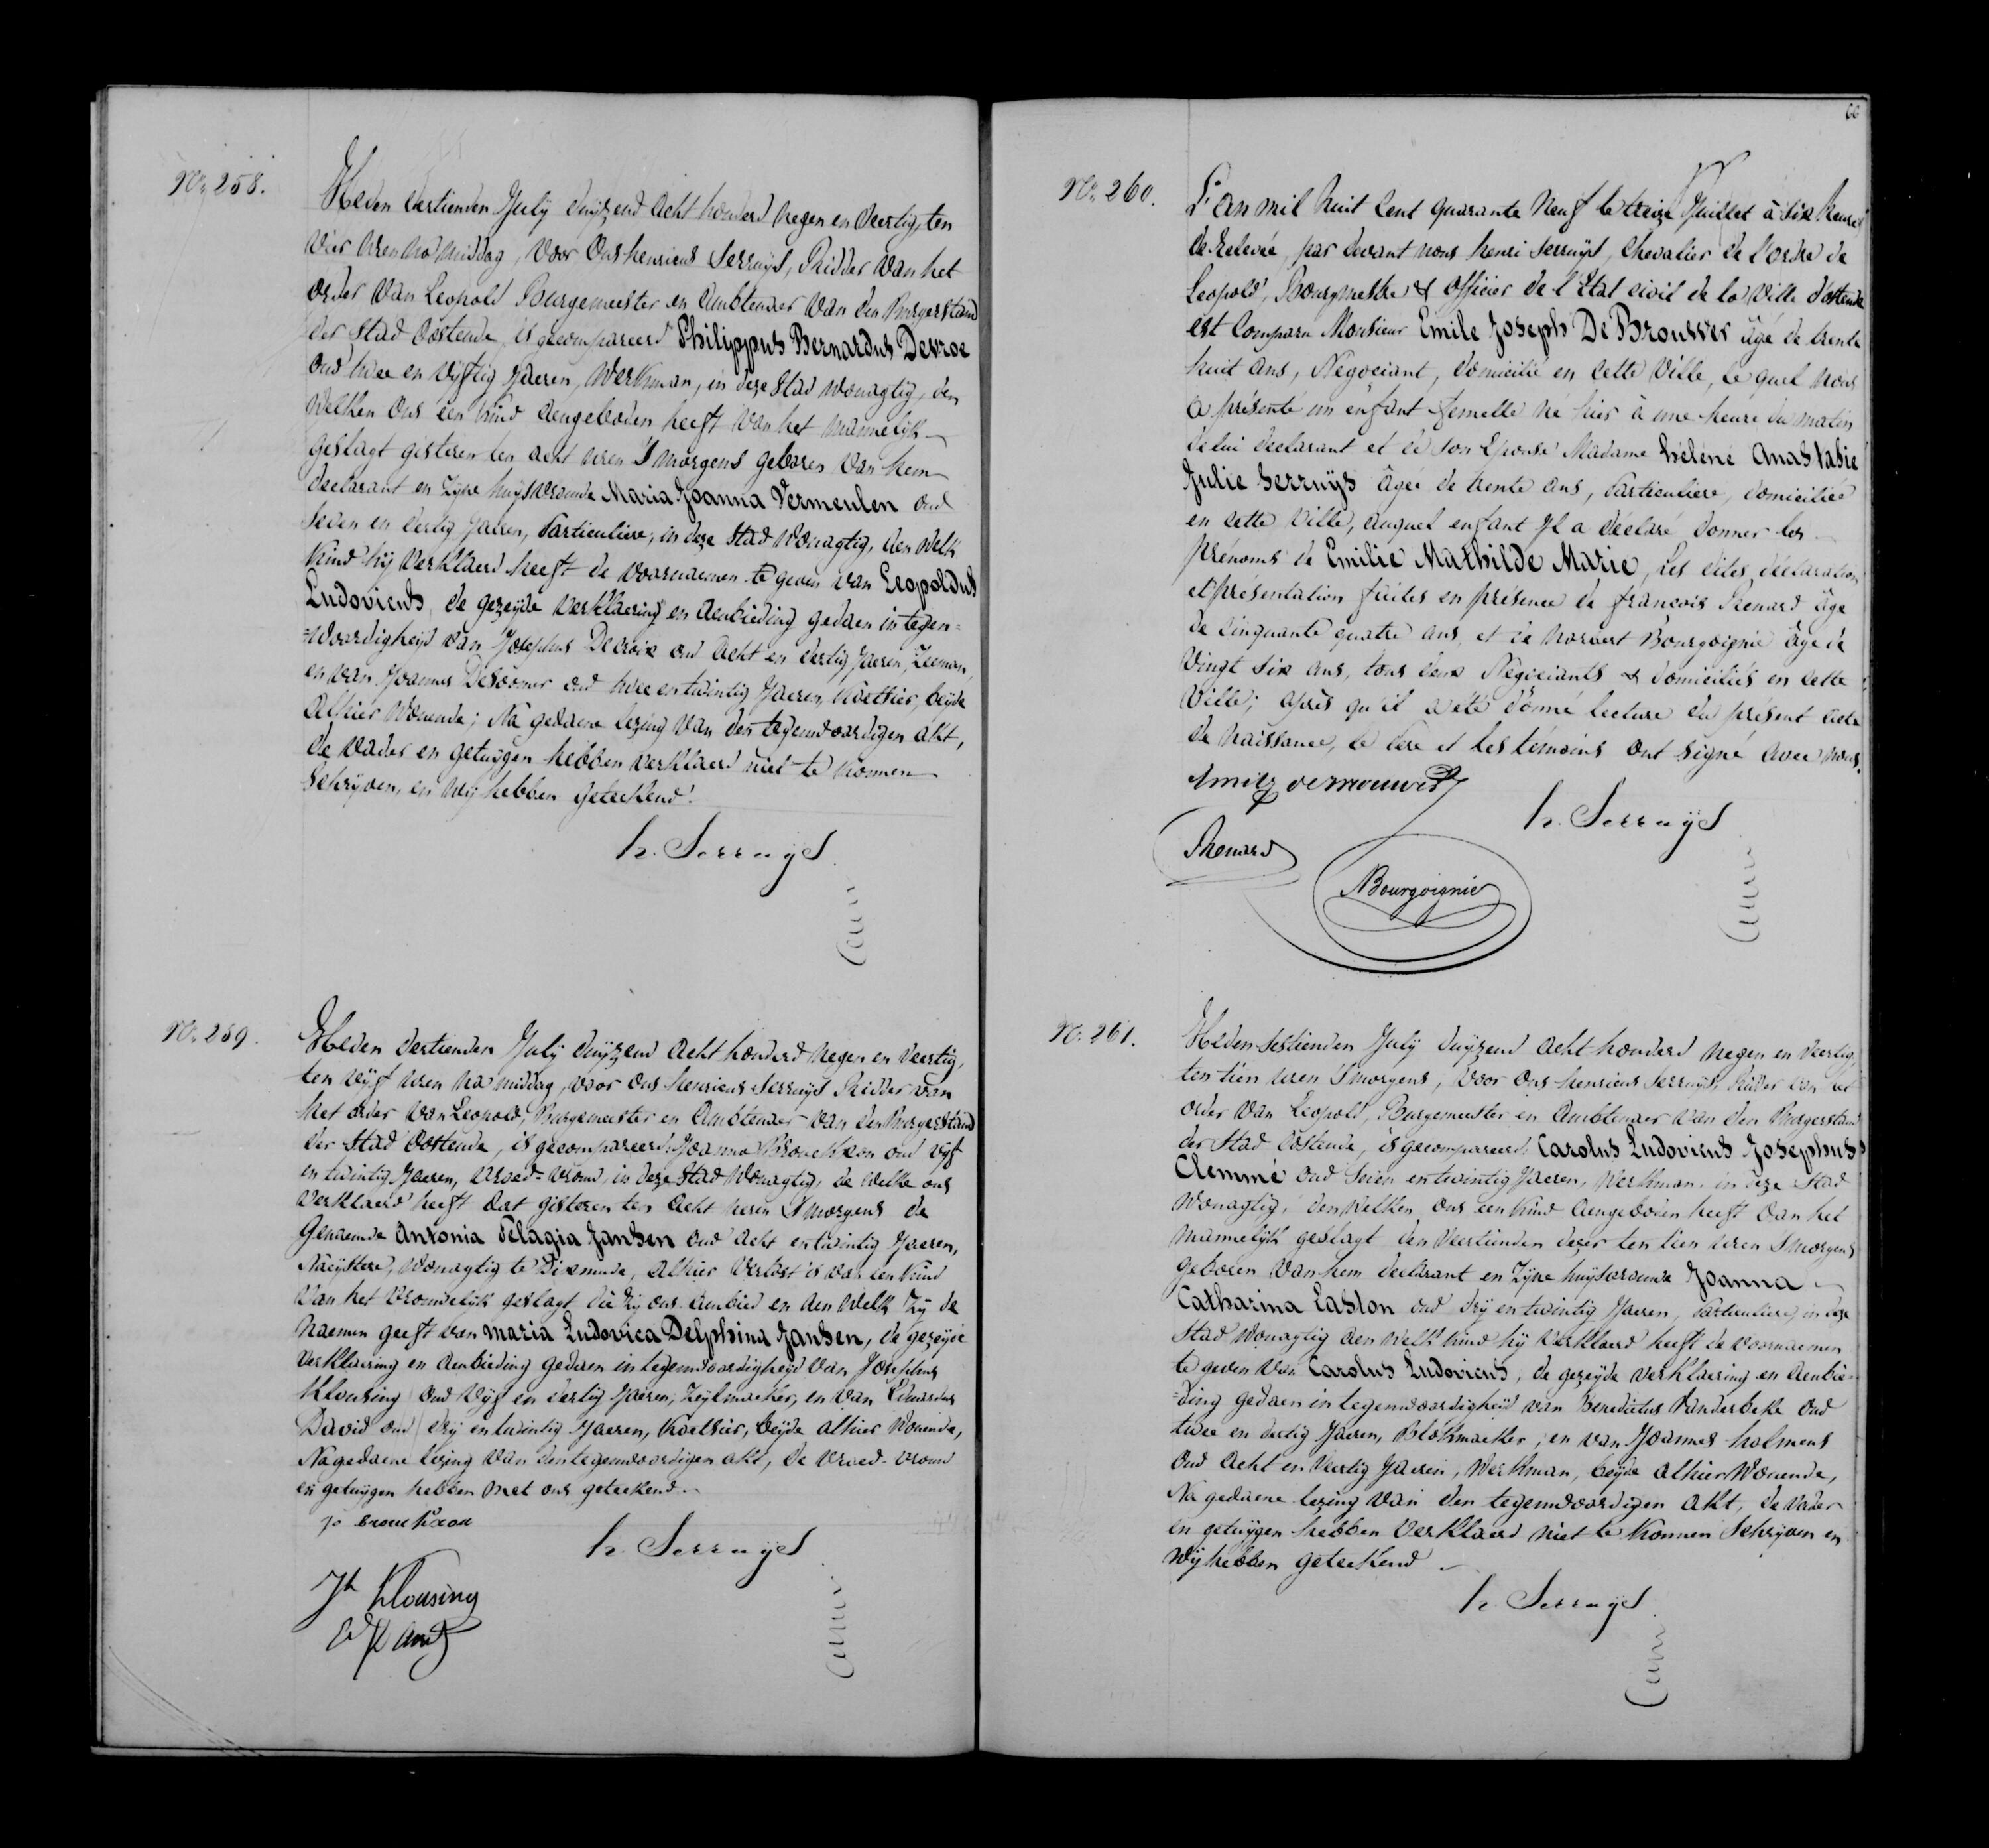 No. 258.
Heden dertienden July duyzend acht honderd negen en veertig, ten
vier uren na middag, voor Ons henricus Serruys, Ridder van het
order van Leopold Burgemeester en Ambtenaer van den Burgerstand
der Stad Oostende, is gecompareerd Philippus Bernardus Devroe
oud twee en vyftig Jaeren, Werkman, in deze Stad wonagtig, den
welken ons een kind aengeboden heeft van het mannelyk
geslagt gisteren ten acht uren 's morgens geboren van hem
declarant en zyne huysvrouwe Maria Joanna Vermeulen oud
seven en dertig Jaeren, Particuliere, in deze Stad wonagtig, aen welk
kind hy verklaerd heeft de voornaemen te geven van Leopoldus
Ludovicus, de gezeyde verklaering en aenbieding gedaen in tegen=
=woordigheyd van Josephus Decroix oud acht en dertig Jaeren, Zeeman,
en van Joannes Desomer oud twee en twintig Jaeren, Koetsier, beyde
alhier wonende; Na gedaene lezing van den tegenwoordigen akt,
de vader en getuygen hebben verklaerd niet te konnen
schryven, en wy hebben geteekend.
h. Serruys
No. 259.
Heden dertienden July duyzend acht honderd negen en veertig,
ten vyf uren na middag, voor ons henricus Serruys Ridder van
het order van Leopold, Burgemeester en Ambtenaer van den Burgerstand
der Stad Oostende, is gecompareerd Joanna Brouckxon oud vyf
en twintig Jaeren, vroed=vrouw, in deze Stad wonagtig, de welke ons
verklaerd heeft dat gisteren ten acht uren 's morgens de
genaemde Antonia Pelagia Jansen oud acht en twintig Jaeren,
Naeystere, wonagtig te Dixmude, alhier verlost is van een kind
van het vrouwelyk geslagt die zy ons aenbied en aen welk zy de
naemen geeft van Maria Ludovica Delphina Jansen, de gezeyde
verklaering en aenbieding gedaen in tegenwoordigheyd van Josephus
Klousing oud vyf en dertig Jaeren, Zeylmaeker, en van Eduardus
David oud dry en twintig Jaeren, Koetsier, beyde alhier wonende,
Na gedaene lezing van den tegenwoordigen akt, de vroed-vrouw
en getuygen hebben met ons geteekend.
Jo Brouckxon
h. Serruys
Jh Klousing
Ed David
66
No. 260.
L'an mil huit cent quarante neuf le treize Juillet à six heures
de relevée, par devant nous henri Serruys, Chevalier de l'ordre de
Leopold, Bourgmestre & officier de l'Etat civil de la Ville d'ostende
est comparu Monsieur Emile Joseph De Brouwer âgé de trente
huit ans, Negociant, domicilié en cette Ville, le quel nous
a présenté un enfant femelle né hier à une heure du matin
de lui declarant et de son Epouse Madame hélène Anastasie
Julie Serruys âgée de trente ans, Particuliere, domiciliée
en cette Ville, auquel enfant Jl a déclaré donner les
prénoms de Emilie Mathilde Marie, Les dites déclaration
et présentation faites en présence de françois Renard âgé
de cinquante quatre ans, et de Norbert Bourgoignie âgé de
vingt six ans, tous deux Négociants & domiciliés en cette
Ville; après qu'il a été donné lecture du présent acte
de naissance, le Père et les témoins ont signé avec nous.
Emile De Brouwer
h. Serruys
Renard
NBourgoignie
No. 261.
Heden sestienden July duyzend acht honderd negen en veertig,
ten tien uren 's morgens, voor ons henricus Serruys, Ridder van het
order van Leopold, Burgemeester en Ambtenaer van den Burgerstand
der Stad Oostende, is gecompareerd Carolus Ludovicus Josephus
Clemmé oud seven en twintig Jaeren, Werkman, in deze Stad
wonagtig, den welken ons een kind aengeboden heeft van het
mannelyk geslagt den veertienden dezer ten tien uren 's morgens
geboren van hem declarant en zyne huysvrouwe Joanna
Catharina Laston oud dry en twintig Jaeren, Particuliere, in deze
Stad wonagtig aen welk kind hy verklaerd heeft de voornaemen
te geven van Carolus Ludovicus, de gezeyde verklaering en aenbie=
=ding gedaen in tegenwoordigheyd van Benedictus Vanderbeke oud
twee en dertig Jaeren, Blokmaeker, en van Joannes holmens
oud acht en veertig Jaeren, Werkman, beyde alhier wonende,
Na gedaene lezing van den tegenwoordigen akt, de vader
en getuygen hebben verklaerd niet te konnen schryven en
wy hebben geteekend
h. Serruys